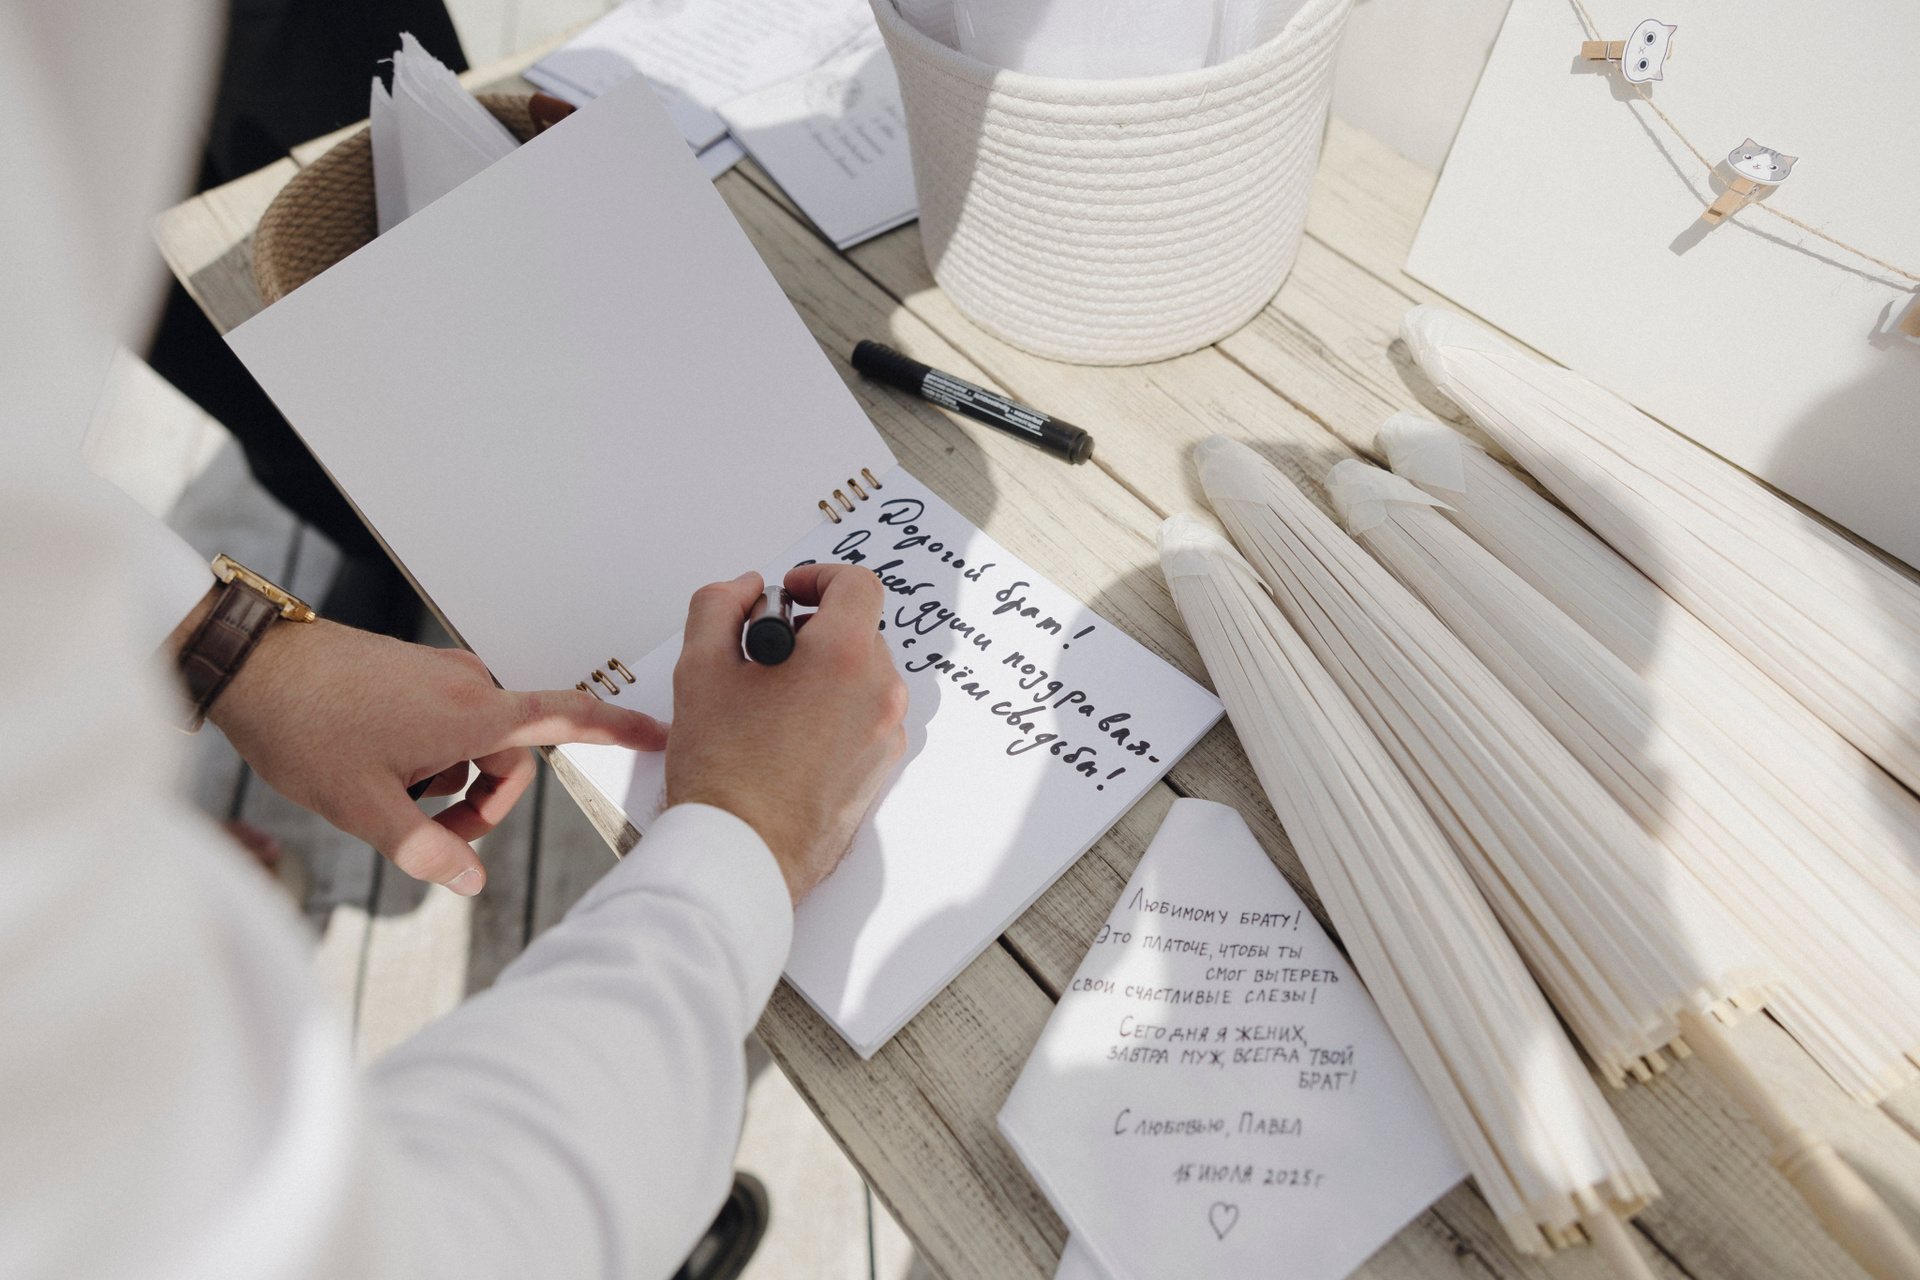 Дорогой брат!
От всей души поздравля-
с днём свадьбы!
Любимому брату!
Это платоче, чтобы ты
смог вытереть
свои счастливые слезы!
Сегодня я жених,
завтра муж, всегда твой
брат!
С любовью, Павел
15 июля 2025г